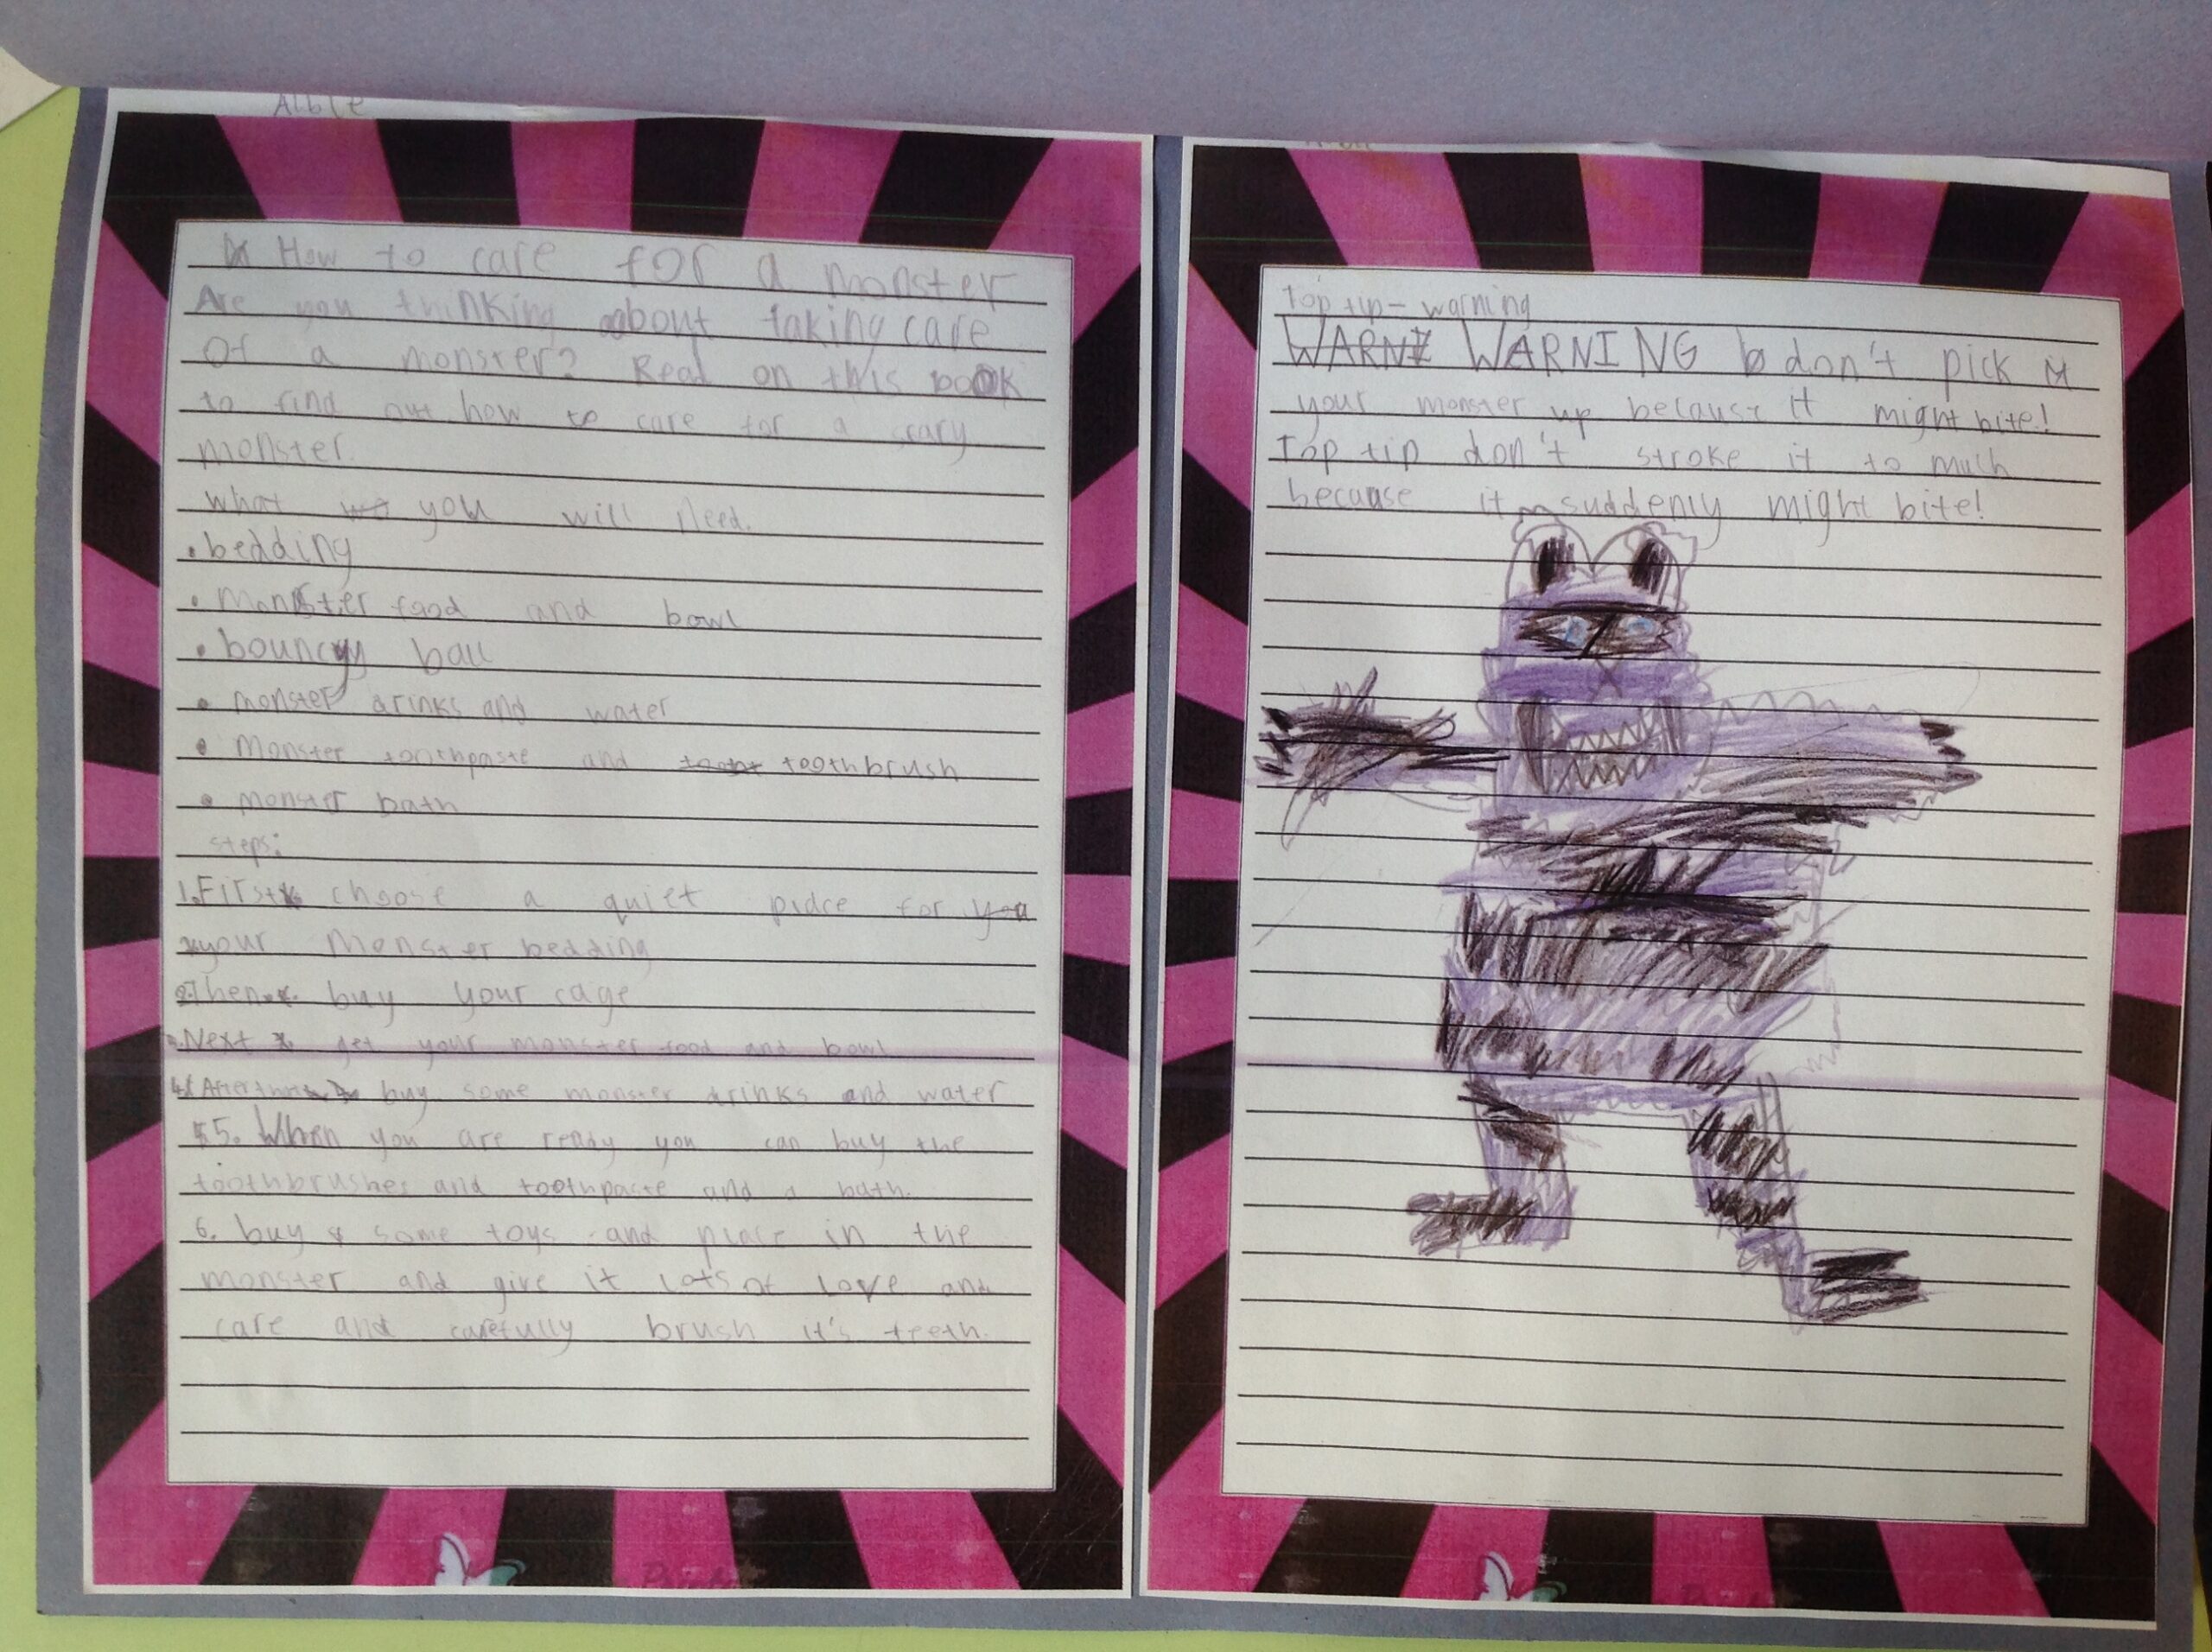 Albie
How to care for a monster
Are you thinking about taking care
Of a monster? Read on this book
to find out how to care for a scary
monster.
what wo you will need.
• bedding
• monster food and bowl
• bouncy ball
• monster drinks and water
• Monster toothpaste and tooht toothbrush
• monster bath
steps:
1. First choose a quiet place for you
your Monster bedding
2. Then buy your cage
3. Next get your monster food and bowl
4. After that buy some monster drinks and water
5. When you are ready you can buy the
toothbrushes and toothpaste and a bath.
6. buy some toys and place in the
monster and give it lots of love and
care and carefully brush it's teeth.
Top tip - warning
WARNI WARNING don't pick it
your monster up because it might bite!
Top tip don't stroke it to much
because it suddenly might bite!